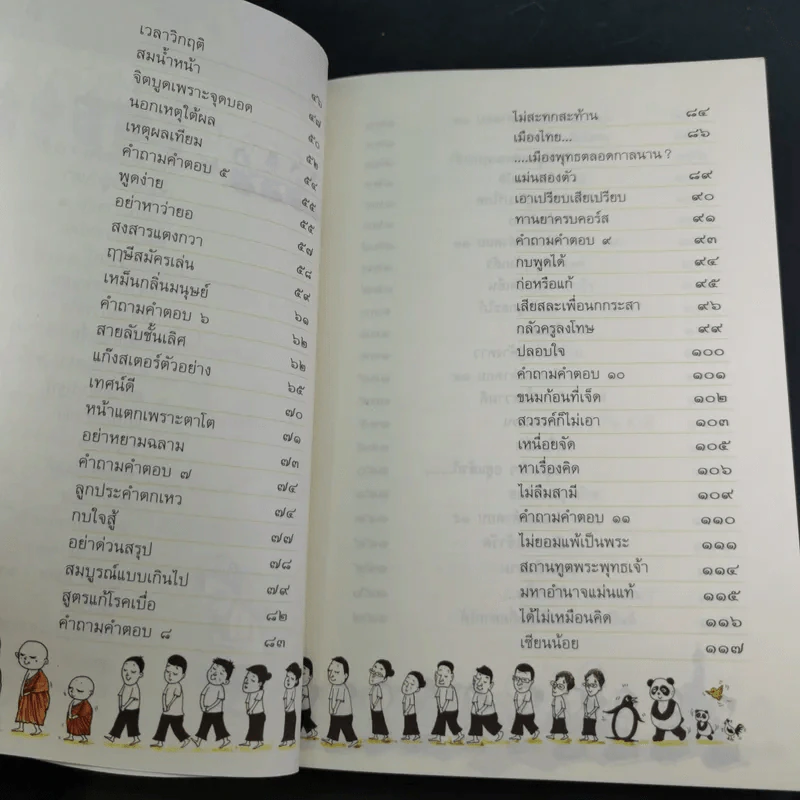 เวลาวิกฤติ ๔๖
สมน้ำหน้า ๔๗
จิตบูดเพราะจุดบอด ๕๐
นอกเหตุใต้ผล ๕๒
เหตุผลเทียม ๕๔
คำถามคำตอบ ๕ ๕๕
พูดง่าย ๕๕
อย่าหาว่ายอ ๕๗
สงสารแตงกวา ๕๘
ฤๅษีสมัครเล่น ๕๙
เหม็นกลิ่นมนุษย์ ๖๑
คำถามคำตอบ ๖ ๖๒
สายลับชั้นเลิศ ๖๒
แก๊งสเตอร์ตัวอย่าง ๖๕
เทศน์ดี ๗๐
หน้าแตกเพราะตาโต ๗๑
อย่าหยามฉลาม ๗๓
คำถามคำตอบ ๗ ๗๔
ลูกประคำตกเหว ๗๔
กบใจสู้ ๗๗
อย่าด่วนสรุป ๗๘
สมบูรณ์แบบเกินไป ๗๙
สูตรแก้โรคเบื่อ ๘๒
คำถามคำตอบ ๘ ๘๓
ไม่สะทกสะท้าน ๘๔
เมืองไทย... ๘๖
....เมืองพุทธตลอดกาลนาน ?
แม่นสองตัว ๘๙
เอาเปรียบเสียเปรียบ ๙๐
ทานยาครบคอร์ส ๙๑
คำถามคำตอบ ๙ ๙๓
กบพูดได้ ๙๔
ก่อหรือแก้ ๙๕
เสียสละเพื่อนกกระสา ๙๖
กลัวครูลงโทษ ๙๙
ปลอบใจ ๑๐๐
คำถามคำตอบ ๑๐ ๑๐๑
ขนมก้อนที่เจ็ด ๑๐๒
สวรรค์ก็ไม่เอา ๑๐๓
เหนื่อยจัด ๑๐๕
หาเรื่องคิด ๑๐๖
ไม่ลืมสามี ๑๐๙
คำถามคำตอบ ๑๑ ๑๑๐
ไม่ยอมแพ้เป็นพระ ๑๑๑
สถานทูตพระพุทธเจ้า ๑๑๔
มหาอำนาจแม่นแท้ ๑๑๕
ได้ไม่เหมือนคิด ๑๑๖
เซียนน้อย ๑๑๗